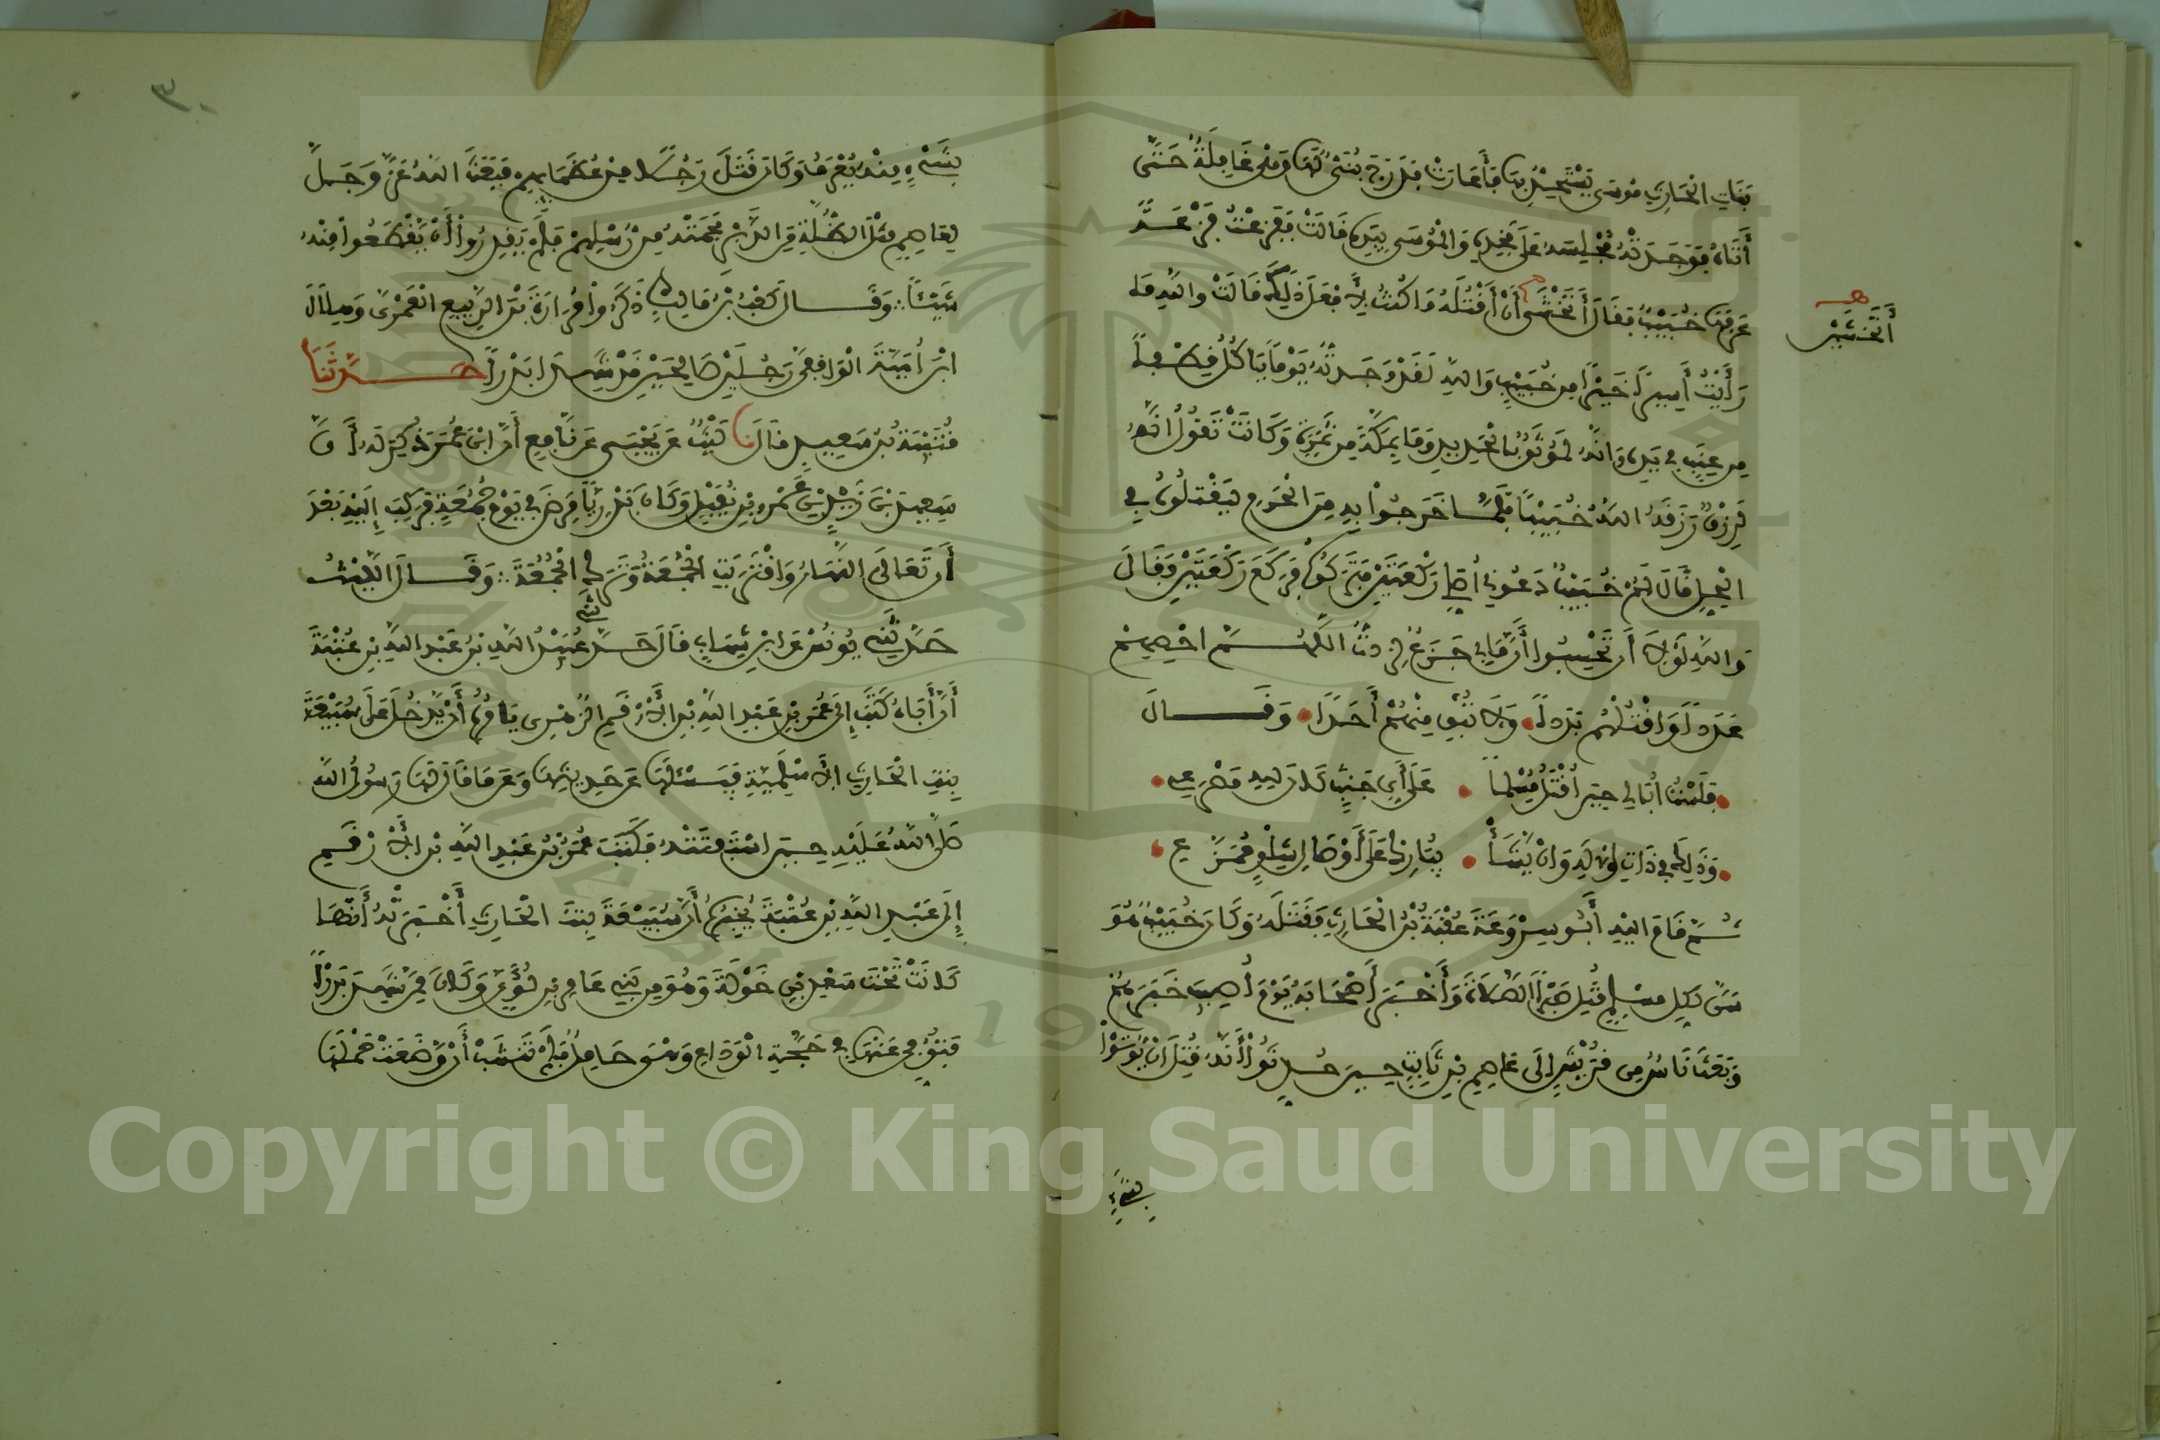 بَنَاتِ الْحَارِثِ مُوسَى يَسْتَحِدُّ بِهَا فَأَعَارَتْهُ فَدَرَجَ بُنَيٌّ لَهَا وَهْيَ غَافِلَةٌ حَتَّى
أَتَاهُ فَوَجَدَتْهُ مُجْلِسَهُ عَلَى فَخِذِهِ وَالْمُوسَى بِيَدِهِ قَالَتْ فَفَزِعْتُ فَزْعَةً
عَرَفَهَا خُبَيْبٌ فَقَالَ أَتَخْشَى أَنْ أَقْتُلَهُ مَا كُنْتُ لِأَفْعَلَ ذَلِكَ قَالَتْ وَاللهِ مَا
أَتَخْشَيْنَ
رَأَيْتُ أَسِيرًا خَيْرًا مِنْ خُبَيْبٍ وَاللهِ لَقَدْ وَجَدْتُهُ يَوْمًا يَأْكُلُ قِطْفًا
مِنْ عِنَبٍ فِي يَدِهِ وَإِنَّهُ لَمُوثَقٌ بِالْحَدِيدِ وَمَا بِمَكَّةَ مِنْ ثَمَرَةٍ وَكَانَتْ تَقُولُ إِنَّهُ
لَرِزْقٌ رَزَقَهُ اللهُ خُبَيْبًا فَلَمَّا خَرَجُوا بِهِ مِنَ الْحَرَمِ لِيَقْتُلُوهُ فِي
الْحِلِّ قَالَ لَهُمْ خُبَيْبٌ دَعُونِي أُصَلِّ رَكْعَتَيْنِ فَتَرَكُوهُ فَرَكَعَ رَكْعَتَيْنِ فَقَالَ
وَاللهِ لَوْلَا أَنْ تَحْسِبُوا أَنَّ مَا بِي جَزَعٌ لَزِدْتُ اللَّهُمَّ أَحْصِهِمْ
عَدَدًا وَاقْتُلْهُمْ بَدَدًا وَلَا تُبْقِ مِنْهُمْ أَحَدًا وَقَالَ
فَلَسْتُ أُبَالِي حِينَ أُقْتَلُ مُسْلِمًا عَلَى أَيِّ جَنْبٍ كَانَ لِلهِ مَصْرَعِي
وَذَلِكَ فِي ذَاتِ الْإِلَهِ وَإِنْ يَشَأْ يُبَارِكْ عَلَى أَوْصَالِ شِلْوٍ مُمَزَّعِ
ثُمَّ قَامَ إِلَيْهِ أَبُو سِرْوَعَةَ عُقْبَةُ بْنُ الْحَارِثِ فَقَتَلَهُ وَكَانَ خُبَيْبٌ هُوَ
سَنَّ لِكُلِّ مُسْلِمٍ قُتِلَ صَبْرًا الصَّلَاةَ وَأَخْبَرَ أَصْحَابَهُ يَوْمَ أُصِيبَ خَبَرَهُمْ
وَبَعَثَ نَاسٌ مِنْ قُرَيْشٍ إِلَى عَاصِمِ بْنِ ثَابِتٍ حِينَ حُدِّثُوا أَنَّهُ قُتِلَ أَنْ يُؤْتَوْا
بِشَيْءٍ
٣٠
بِشَيْءٍ مِنْهُ يُعْرَفُ وَكَانَ قَتَلَ رَجُلًا مِنْ عُظَمَائِهِمْ فَبَعَثَ اللهُ عَزَّ وَجَلَّ
لِعَاصِمٍ مِثْلَ الظُّلَّةِ مِنَ الدَّبْرِ فَحَمَتْهُ مِنْ رُسُلِهِمْ فَلَمْ يَقْدِرُوا أَنْ يَقْطَعُوا مِنْهُ
شَيْئًا وَقَالَ كَعْبُ بْنُ مَالِكٍ ذَكَرُوا مُرَارَةَ بْنَ الرَّبِيعِ الْعَمْرِيَّ وَهِلَالَ
ابْنَ أُمَيَّةَ الْوَاقِفِيَّ رَجُلَيْنِ صَالِحَيْنِ قَدْ شَهِدَا بَدْرًا حَدَّثَنَا
قُتَيْبَةُ بْنُ سَعِيدٍ قَالَ نَا لَيْثٌ عَنْ يَحْيَى عَنْ نَافِعٍ أَنَّ ابْنَ عُمَرَ ذُكِرَ لَهُ أَنَّ
سَعِيدَ بْنَ زَيْدِ بْنِ عَمْرِو بْنِ نُفَيْلٍ وَكَانَ بَدْرِيًّا مَرِضَ فِي يَوْمِ جُمُعَةٍ فَرَكِبَ إِلَيْهِ بَعْدَ
أَنْ تَعَالَى النَّهَارُ وَاقْتَرَبَتِ الْجُمُعَةُ وَتَرَكَ الْجُمُعَةَ وَقَالَ اللَّيْثُ
حَدَّثَنِي يُونُسُ عَنِ ابْنِ شِهَابٍ قَالَ حَدَّثَنِي عُبَيْدُ اللهِ بْنُ عَبْدِ اللهِ بْنِ عُتْبَةَ
أَنَّ أَبَاهُ كَتَبَ إِلَى عُمَرَ بْنِ عَبْدِ اللهِ بْنِ الْأَرْقَمِ الزُّهْرِي يَأْمُرُهُ أَنْ يَدْخُلَ عَلَى سُبَيْعَةَ
بِنْتِ الْحَارِثِ الْأَسْلَمِيَّةِ فَيَسْأَلَهَا عَنْ حَدِيثِهَا وَعَنْ مَا قَالَ لَهَا رَسُولُ اللهِ
صَلَّى اللهُ عَلَيْهِ حِينَ اسْتَفْتَتْهُ فَكَتَبَ عُمَرُ بْنُ عَبْدِ اللهِ بْنِ الْأَرْقَمِ
إِلَى عَبْدِ اللهِ بْنِ عُتْبَةَ يُخْبِرُهُ أَنَّ سُبَيْعَةَ بِنْتَ الْحَارِثِ أَخْبَرَتْهُ أَنَّهَا
كَانَتْ تَحْتَ سَعْدِ بْنِ خَوْلَةَ وَهُوَ مِنْ بَنِي عَامِرِ بْنِ لُؤَيٍّ وَكَانَ مِمَّنْ شَهِدَ بَدْرًا
فَتُوُفِّيَ عَنْهَا فِي حَجَّةِ الْوَدَاعِ وَهْيَ حَامِلٌ فَلَمْ تَنْشَبْ أَنْ وَضَعَتْ حَمْلَهَا
Copyright © King Saud University